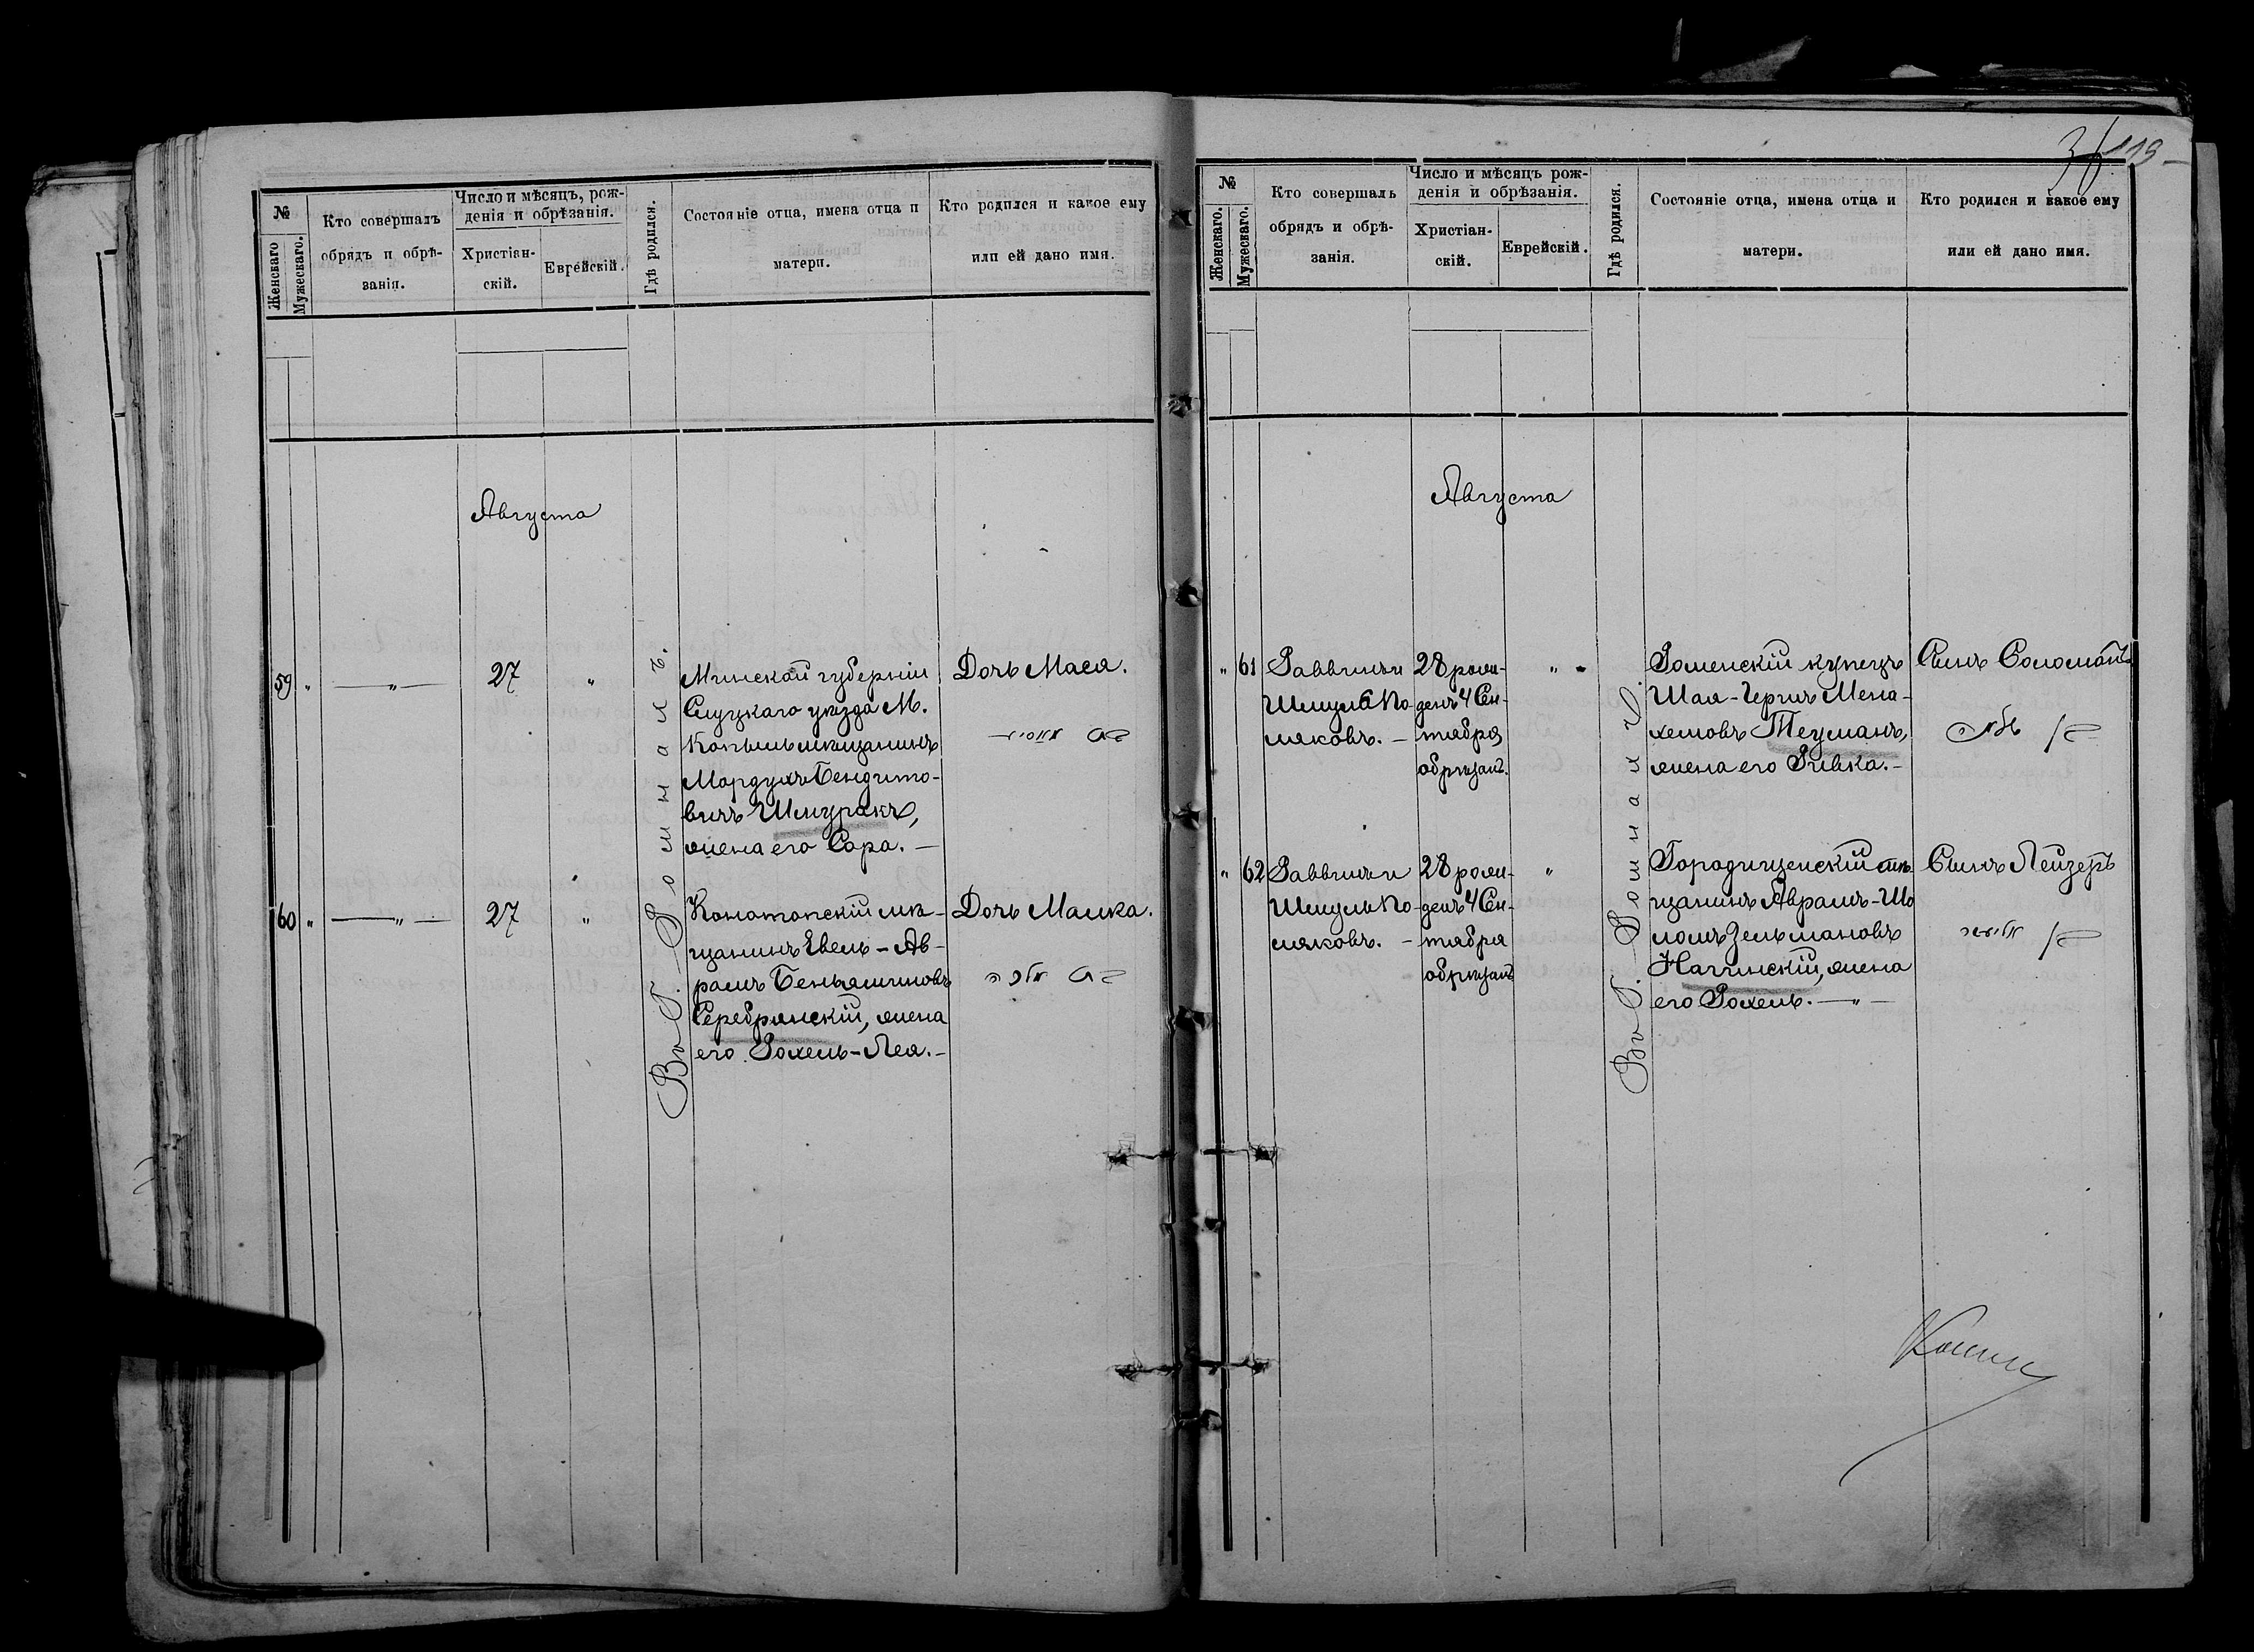 №
Женскаго
Мужескаго.
Кто совершалъ
обрядъ и обрѣ-
занія.
Число и мѣсяцъ, рож-
денія и обрѣзанія.
Христіан-
скій.
Еврейскій.
Гдѣ родился.
Состояніе отца, имена отца и
матери.
Кто родился и какое ему
или ей дано имя.
Августа
Въ Г. Ромнахъ.
59 " — " — 27 "
Минской губерніи
Слуцкаго уѣзда М.
Копыль мѣщанинъ
Мордухъ Бендито-
вичъ Шмуракъ,
жена его Сора. —
Дочь Мася.
60 " — " — 27 "
Конотопскій мѣ-
щанинъ Евель-Ав-
рамъ Беньяминовъ
Серебрянскій, жена
его Рохель-Лея. —
Дочь Малка.
119
№
Женскаго.
Мужескаго.
Кто совершалъ
обрядъ и обрѣ-
занія.
Число и мѣсяцъ рож-
денія и обрѣзанія.
Христіан-
скій.
Еврейскій.
Гдѣ родился.
Состояніе отца, имена отца и
матери.
Кто родился и какое ему
или ей дано имя.
Августа
Въ Г. Ромнахъ.
" 61 Раввинъ и
Шмуль По-
ляковъ. —
28 рож-
денъ 4 Сен-
тября
обрѣзанъ.
"
Роменскій купецъ
Шая-Герцъ Мена-
хемовъ Теуманъ,
жена его Ривка. —
Сынъ Соломонъ
" 62 Раввинъ и
Шмуль По-
ляковъ. —
28 рож-
денъ 4 Сен-
тября
обрѣзанъ
"
Городищенскій мѣ-
щанинъ Аврамъ-Шо
ломъ Зельмановъ
Нагинскій, жена
его Рохель. — " —
Сынъ Лейзеръ